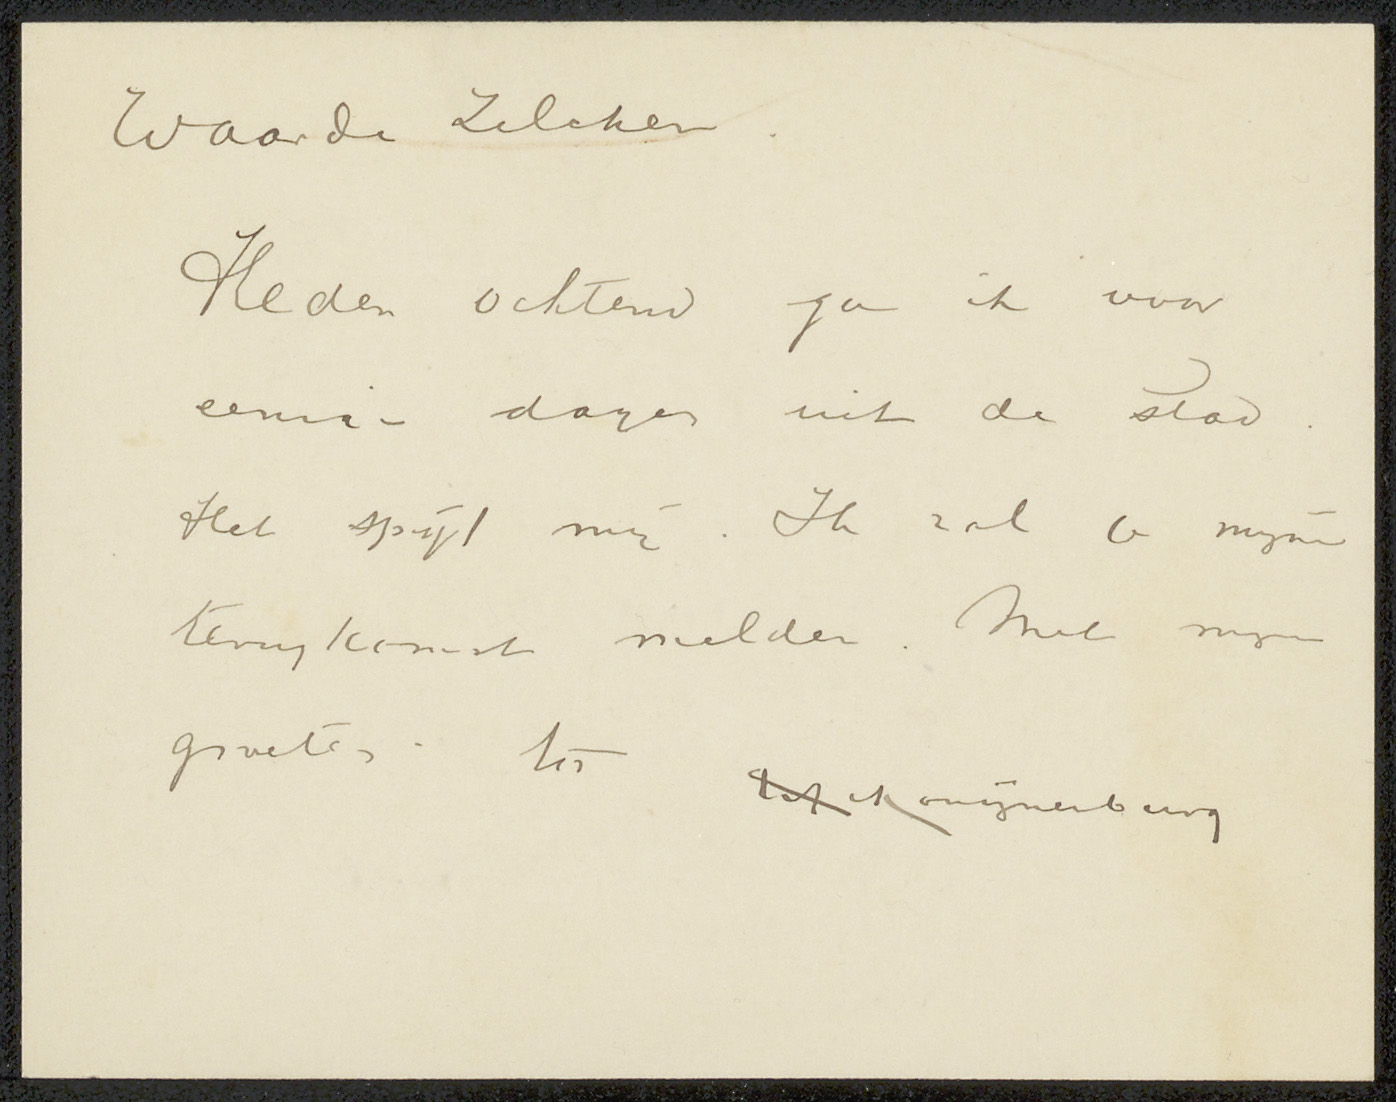 Waarde Zilcken.
Heden ochtend ga ik voor
eenige dagen uit de stad.
Het spijt mij. Ik zal U mijne
terugkomst melden. Met mijne
groeten. tt
WA v Konijnenburg